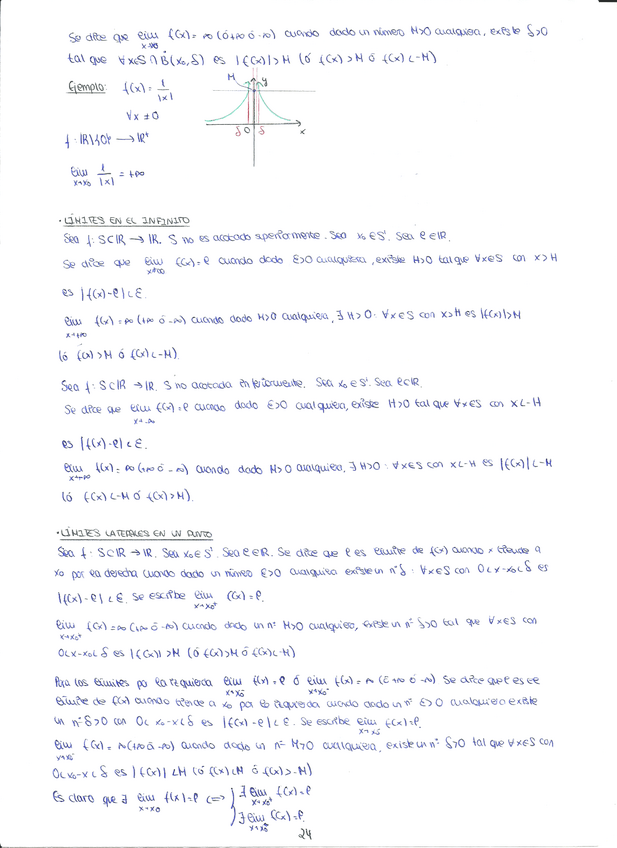 Se dice que lim f(x) = ∞ (ó +∞ ó -∞) cuando dado un número M>0 cualquiera, existe δ>0
x→x₀
tal que ∀x∈S∩B(x₀,δ) es |f(x)|>M (ó f(x)>M ó f(x)<-M)
Ejemplo: f(x) = 1/|x|
∀x ≠ 0
f: ℝ\{0} → ℝ⁺
lim 1/|x| = +∞
x→x₀
M y
δ 0 δ x
· LÍMITES EN EL INFINITO
Sea f: S⊂ℝ → ℝ. S no es acotado superiormente. Sea x₀∈S'. Sea ℓ∈ℝ.
Se dice que lim f(x)=ℓ cuando dado ε>0 cualquiera, existe H>0 tal que ∀x∈S con x>H
x→+∞
es |f(x)-ℓ|<ε.
lim f(x)=∞ (+∞ ó -∞) cuando dado M>0 cualquiera, ∃ H>0: ∀x∈S con x>H es |f(x)|>M
x→+∞
(ó f(x)>M ó f(x)<-M).
Sea f: S⊂ℝ → ℝ. S no acotada inferiormente. Sea x₀∈S'. Sea ℓ∈ℝ.
Se dice que lim f(x)=ℓ cuando dado ε>0 cualquiera, existe H>0 tal que ∀x∈S con x<-H
x→-∞
es |f(x)-ℓ|<ε.
lim f(x)=∞ (+∞ ó -∞) cuando dado M>0 cualquiera, ∃ H>0: ∀x∈S con x<-H es |f(x)|<-M
x→+∞
(ó f(x)<-M ó f(x)>M).
· LÍMITES LATERALES EN UN PUNTO
Sea f: S⊂ℝ → ℝ. Sea x₀∈S'. Sea ℓ∈ℝ. Se dice que ℓ es límite de f(x) cuando x tiende a
x₀ por la derecha cuando dado un número ε>0 cualquiera existe un nº δ: ∀x∈S con 0<x-x₀<δ es
|f(x)-ℓ|<ε. Se escribe lim f(x)=ℓ.
x→x₀⁺
lim f(x)=∞ (+∞ ó -∞) cuando dado un nº M>0 cualquiera, existe un nº δ>0 tal que ∀x∈S con
x→x₀⁺
0<x-x₀<δ es |f(x)|>M (ó f(x)>M ó f(x)<-M)
Para los límites por la izquierda lim f(x)=ℓ ó lim f(x)=∞ (+∞ ó -∞) Se dice que ℓ es el
x→x₀⁻ x→x₀⁻
límite de f(x) cuando tiende a x₀ por la izquierda cuando dado un nº ε>0 cualquiera existe
un nº δ>0 con 0<x₀-x<δ es |f(x)-ℓ|<ε. Se escribe lim f(x)=ℓ.
x→x₀⁻
lim f(x)=∞ (+∞ ó -∞) cuando dado un nº M>0 cualquiera, existe un nº δ>0 tal que ∀x∈S con
x→x₀⁻
0<x₀-x<δ es |f(x)|<M (ó f(x)<M ó f(x)>-M)
Es claro que ∃ lim f(x)=ℓ <=> ∃ lim f(x)=ℓ
x→x₀ x→x₀⁺
∃ lim f(x)=ℓ.
x→x₀⁻
24